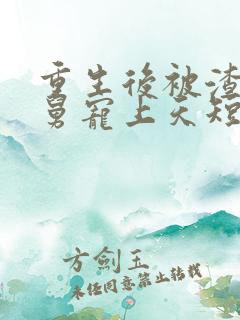 重生後被渣
舅寵上天短
方劍玉
未經同意禁止轉載